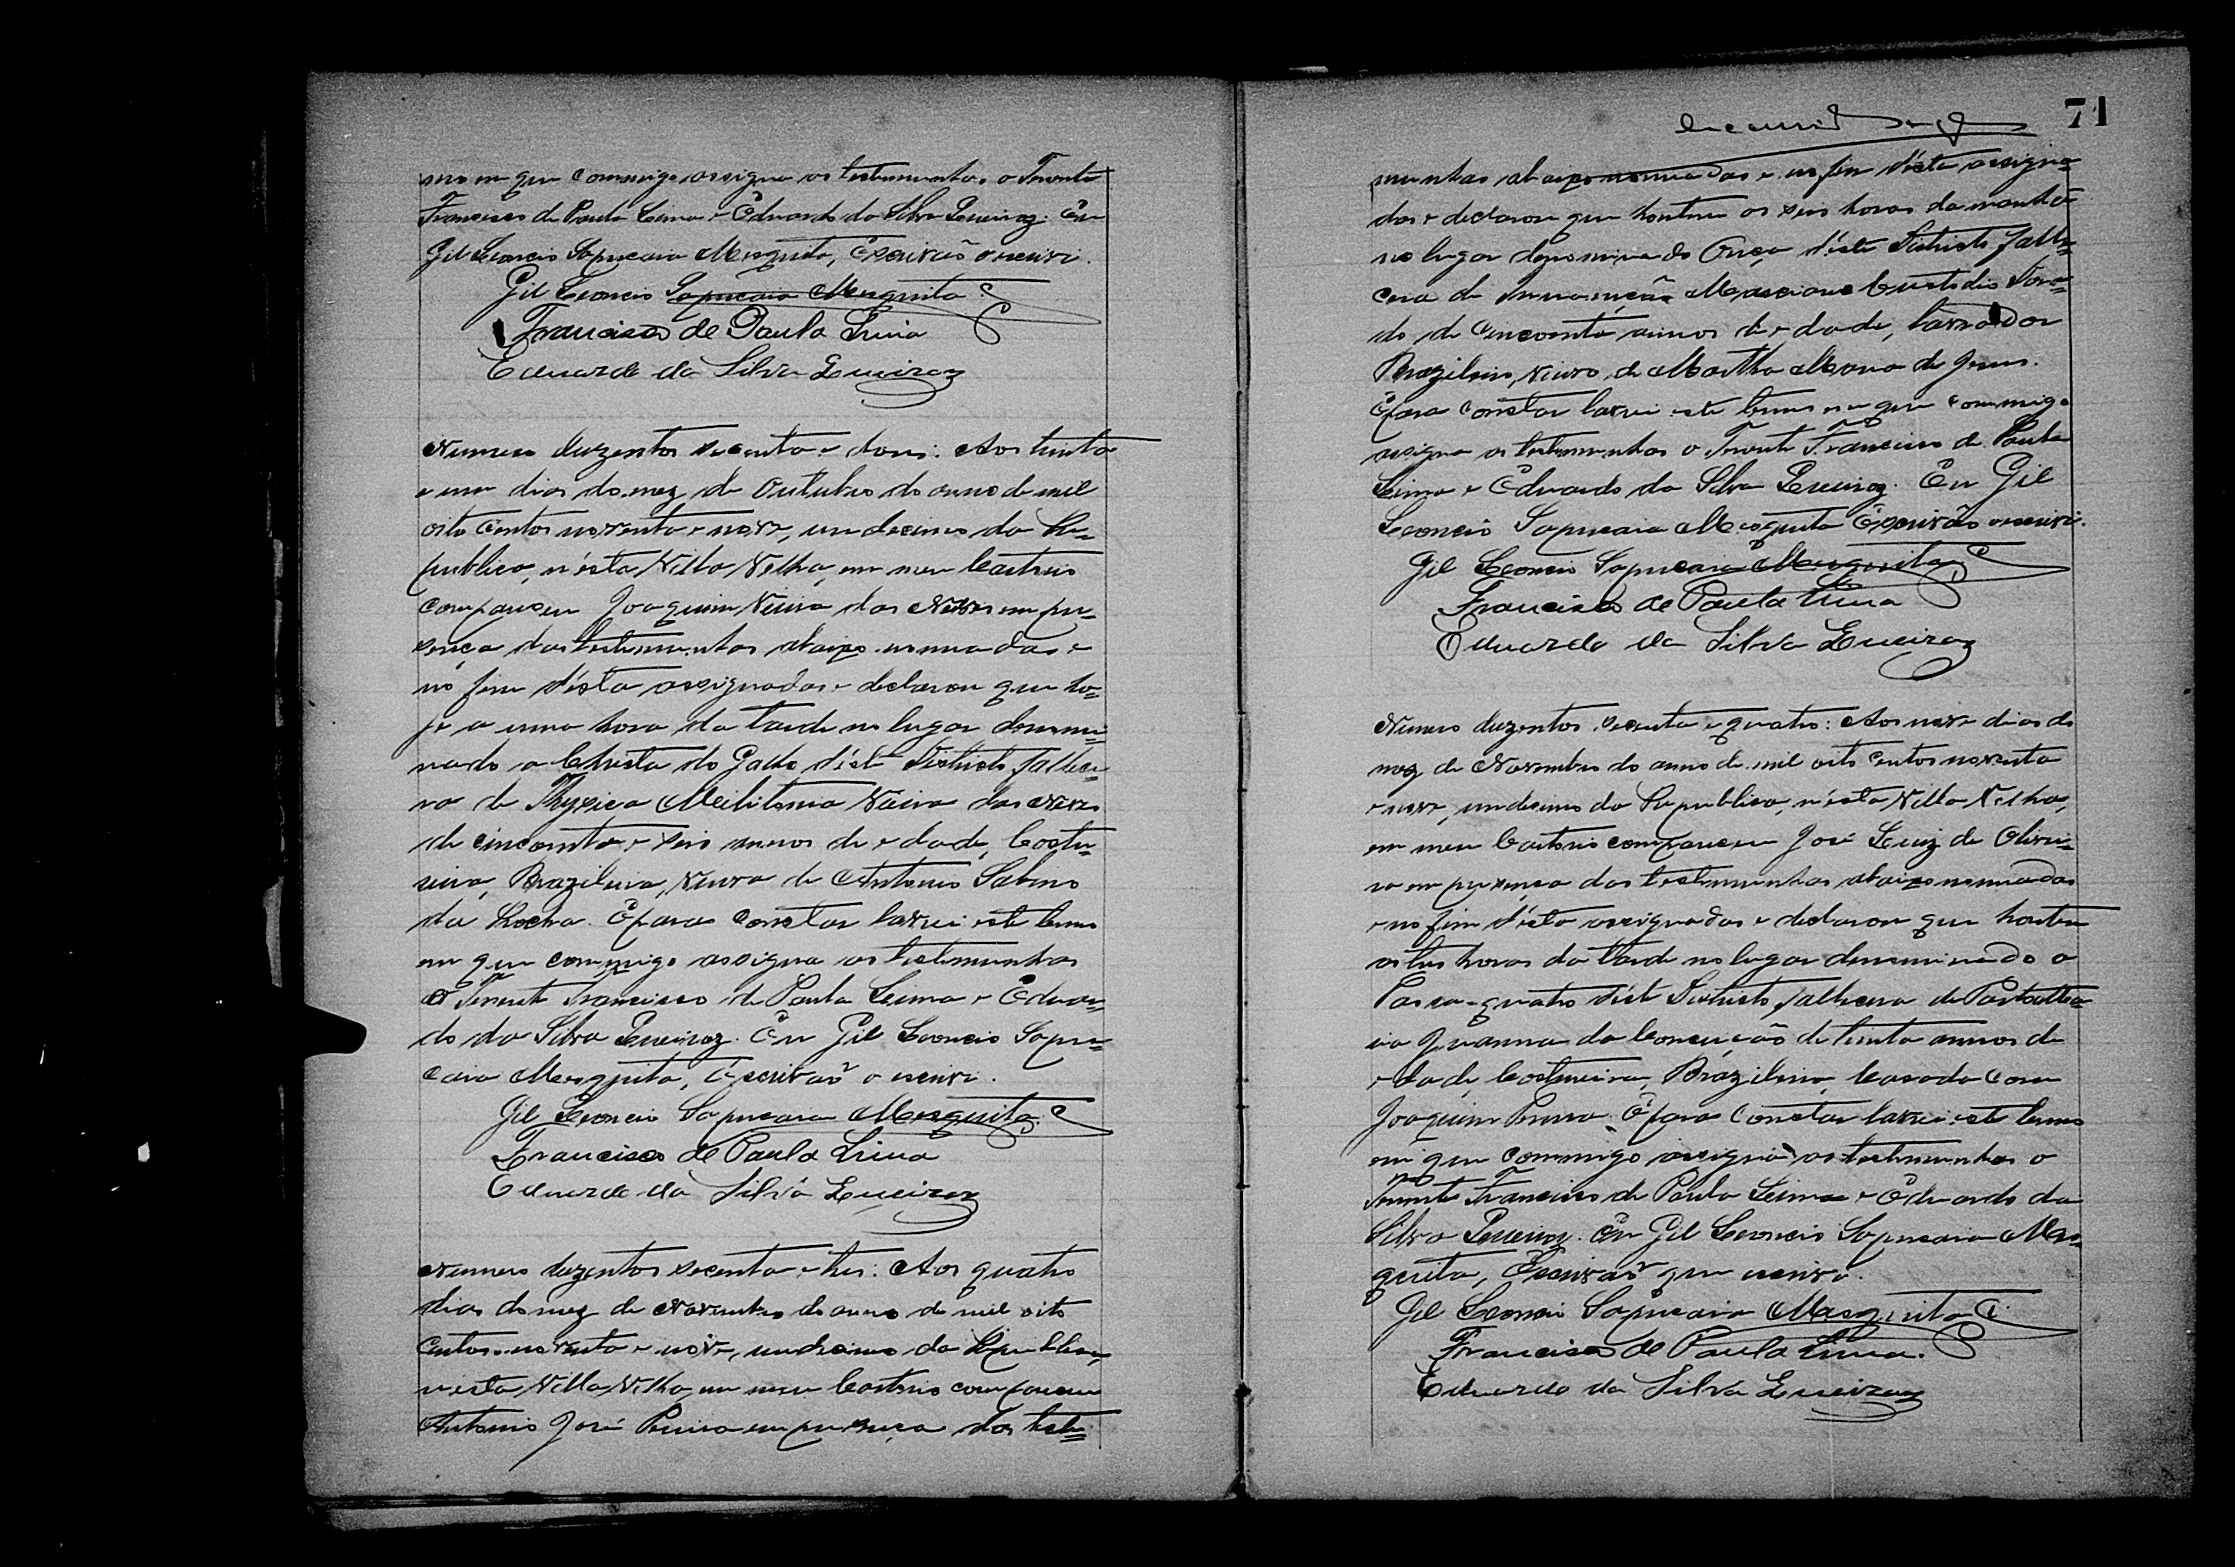 mo em que commigo assigna as testemunhas o Tenente
Francisco de Paula Lima e Eduardo da Silva Queiroz. Eu
Gil Leoncio Sapucaia Mesquita, Escrivão o escrivi.
Gil Leoncio Sapucaia Mesquita
Francisco de Paula Lima
Eduardo da Silva Queiroz
Numero duzentos secenta e dous: Aos trinta
e um dias do mez de Outubro do anno de mil
oito centos noventa e nove, undecimo da Re=
publica, n'ésta Villa Velha, em meu Cartorio
compareceu Joaquim Vieira das Neves em pre=
sença das testemunhas abaixo nomeadas e
no fim d'ésta assignadas e declarou que ho=
je a uma hora da tarde no lugar denomi=
nado a Christa do Gallo d'éste Districto fallece=
ra de Thysica Militana Vieira das Neves
de cincoenta e seis annos de edade, Costu=
reira, Brazileira, Viuva de Antonio Sabino
da Rocha. E para constar lavrei este termo
em que commigo assigna as testemunhas
o Tenente Francisco de Paula Lima e Eduar=
do da Silva Queiroz. Eu Gil Leoncio Sapu=
caia Mesquita, Escrivão o escrivi.
Gil Leoncio Sapucaia Mesquita
Francisco de Paula Lima
Eduardo da Silva Queiroz
Numero duzentos secenta e tres: Aos quatro
dias do mez de Novembro do anno de mil oito
centos noventa e nove, undecimo da Republica,
n'esta Villa Velha, em meu Cartorio compareceu
Antonio José Pereira em presença das teste=
71
munhas abaixo nomeadas e no fim d'ésta assigna=
das e declarou que hontem as seis horas da manhã
no lugar denominado Onça d'éste Districto falle=
cera de Marciano Custodio
de cincoenta annos de edade, lavrador
Brazileiro, Viuvo de Martha Maria de Jesus.
E para constar lavrei este termo em que commigo
assigna as testemunhas o Tenente Francisco de Paula
Lima e Eduardo da Silva Queiroz. Eu Gil
Leoncio Sapucaia Mesquita Escrivão o escrivi.
Gil Leoncio Sapucaia Mesquita
Francisco de Paula Lima
Eduardo da Silva Queiroz
Numero duzentos secenta e quatro: Aos nove dias do
mez de Novembro do anno de mil oito centos noventa
e nove, undecimo da Republica, n'ésta Villa Velha,
em meu Cartorio compareceu José Luiz de Olivei=
ra em presença das testemunhas abaixo nomeadas
e no fim d'ésta assignadas e declarou que hontem
as tres horas da tarde no lugar denominado o
Passa-quatro d'éste Districto fallecera de Parto
Joanna da Conceição de trinta annos de
edade, Costureira, Brazileira, Casada com
Joaquim E para constar lavrei este termo
em que commigo assigna as testemunhas o
Tenente Francisco de Paula Lima e Eduardo da
Silva Queiroz. Eu Gil Leoncio Sapucaia Mes=
quita, Escrivão que escrivi.
Gil Leoncio Sapucaia Mesquita
Francisco de Paula Lima.
Eduardo da Silva Queiroz